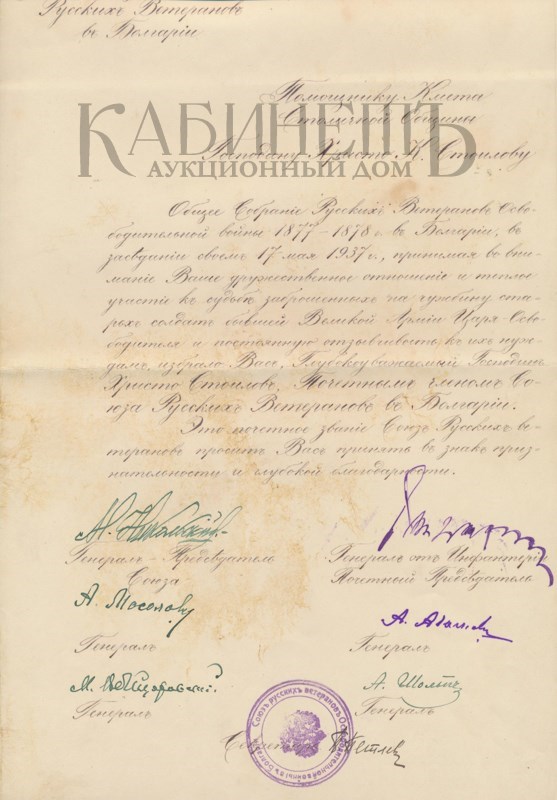 Русскихъ Ветерановъ
въ Болгаріи
Помощнику Кмета
Столичной Общины
КАБИНЕТЪ
АУКЦИОННЫЙ ДОМ
Господину Христо К. Стоилову
Общее Собраніе Русскихъ Ветерановъ Осво-
бодительной войны 1877-1878 г. въ Болгаріи, въ
засѣданіи своемъ 17 мая 1937 г., принимая во вни-
маніе Ваше дружественное отношеніе и теплое
участіе къ судьбѣ заброшенныхъ на чужбину ста-
рыхъ солдатъ бывшей Великой Арміи Царя-Осво-
бодителя и постоянную отзывчивость къ ихъ нуж-
дамъ, избрало Васъ, Глубокоуважаемый Господинъ
Христо Стоиловъ, Почетнымъ членомъ Со-
юза Русскихъ Ветерановъ въ Болгаріи.
Это почетное званіе Союзъ Русскихъ ве-
терановъ проситъ Васъ принять въ знакъ приз-
нательности и глубокой благодарности.
Генералъ-Предсѣдатель
Союза
Генералъ отъ Инфантеріи
Почетный Предсѣдатель
А. Мосоловъ
Генералъ
А. 
Генералъ
М. 
Генералъ
А. 
Генералъ
Союзъ русскихъ ветерановъ Освободительной войны въ Болгаріи
Секретарь